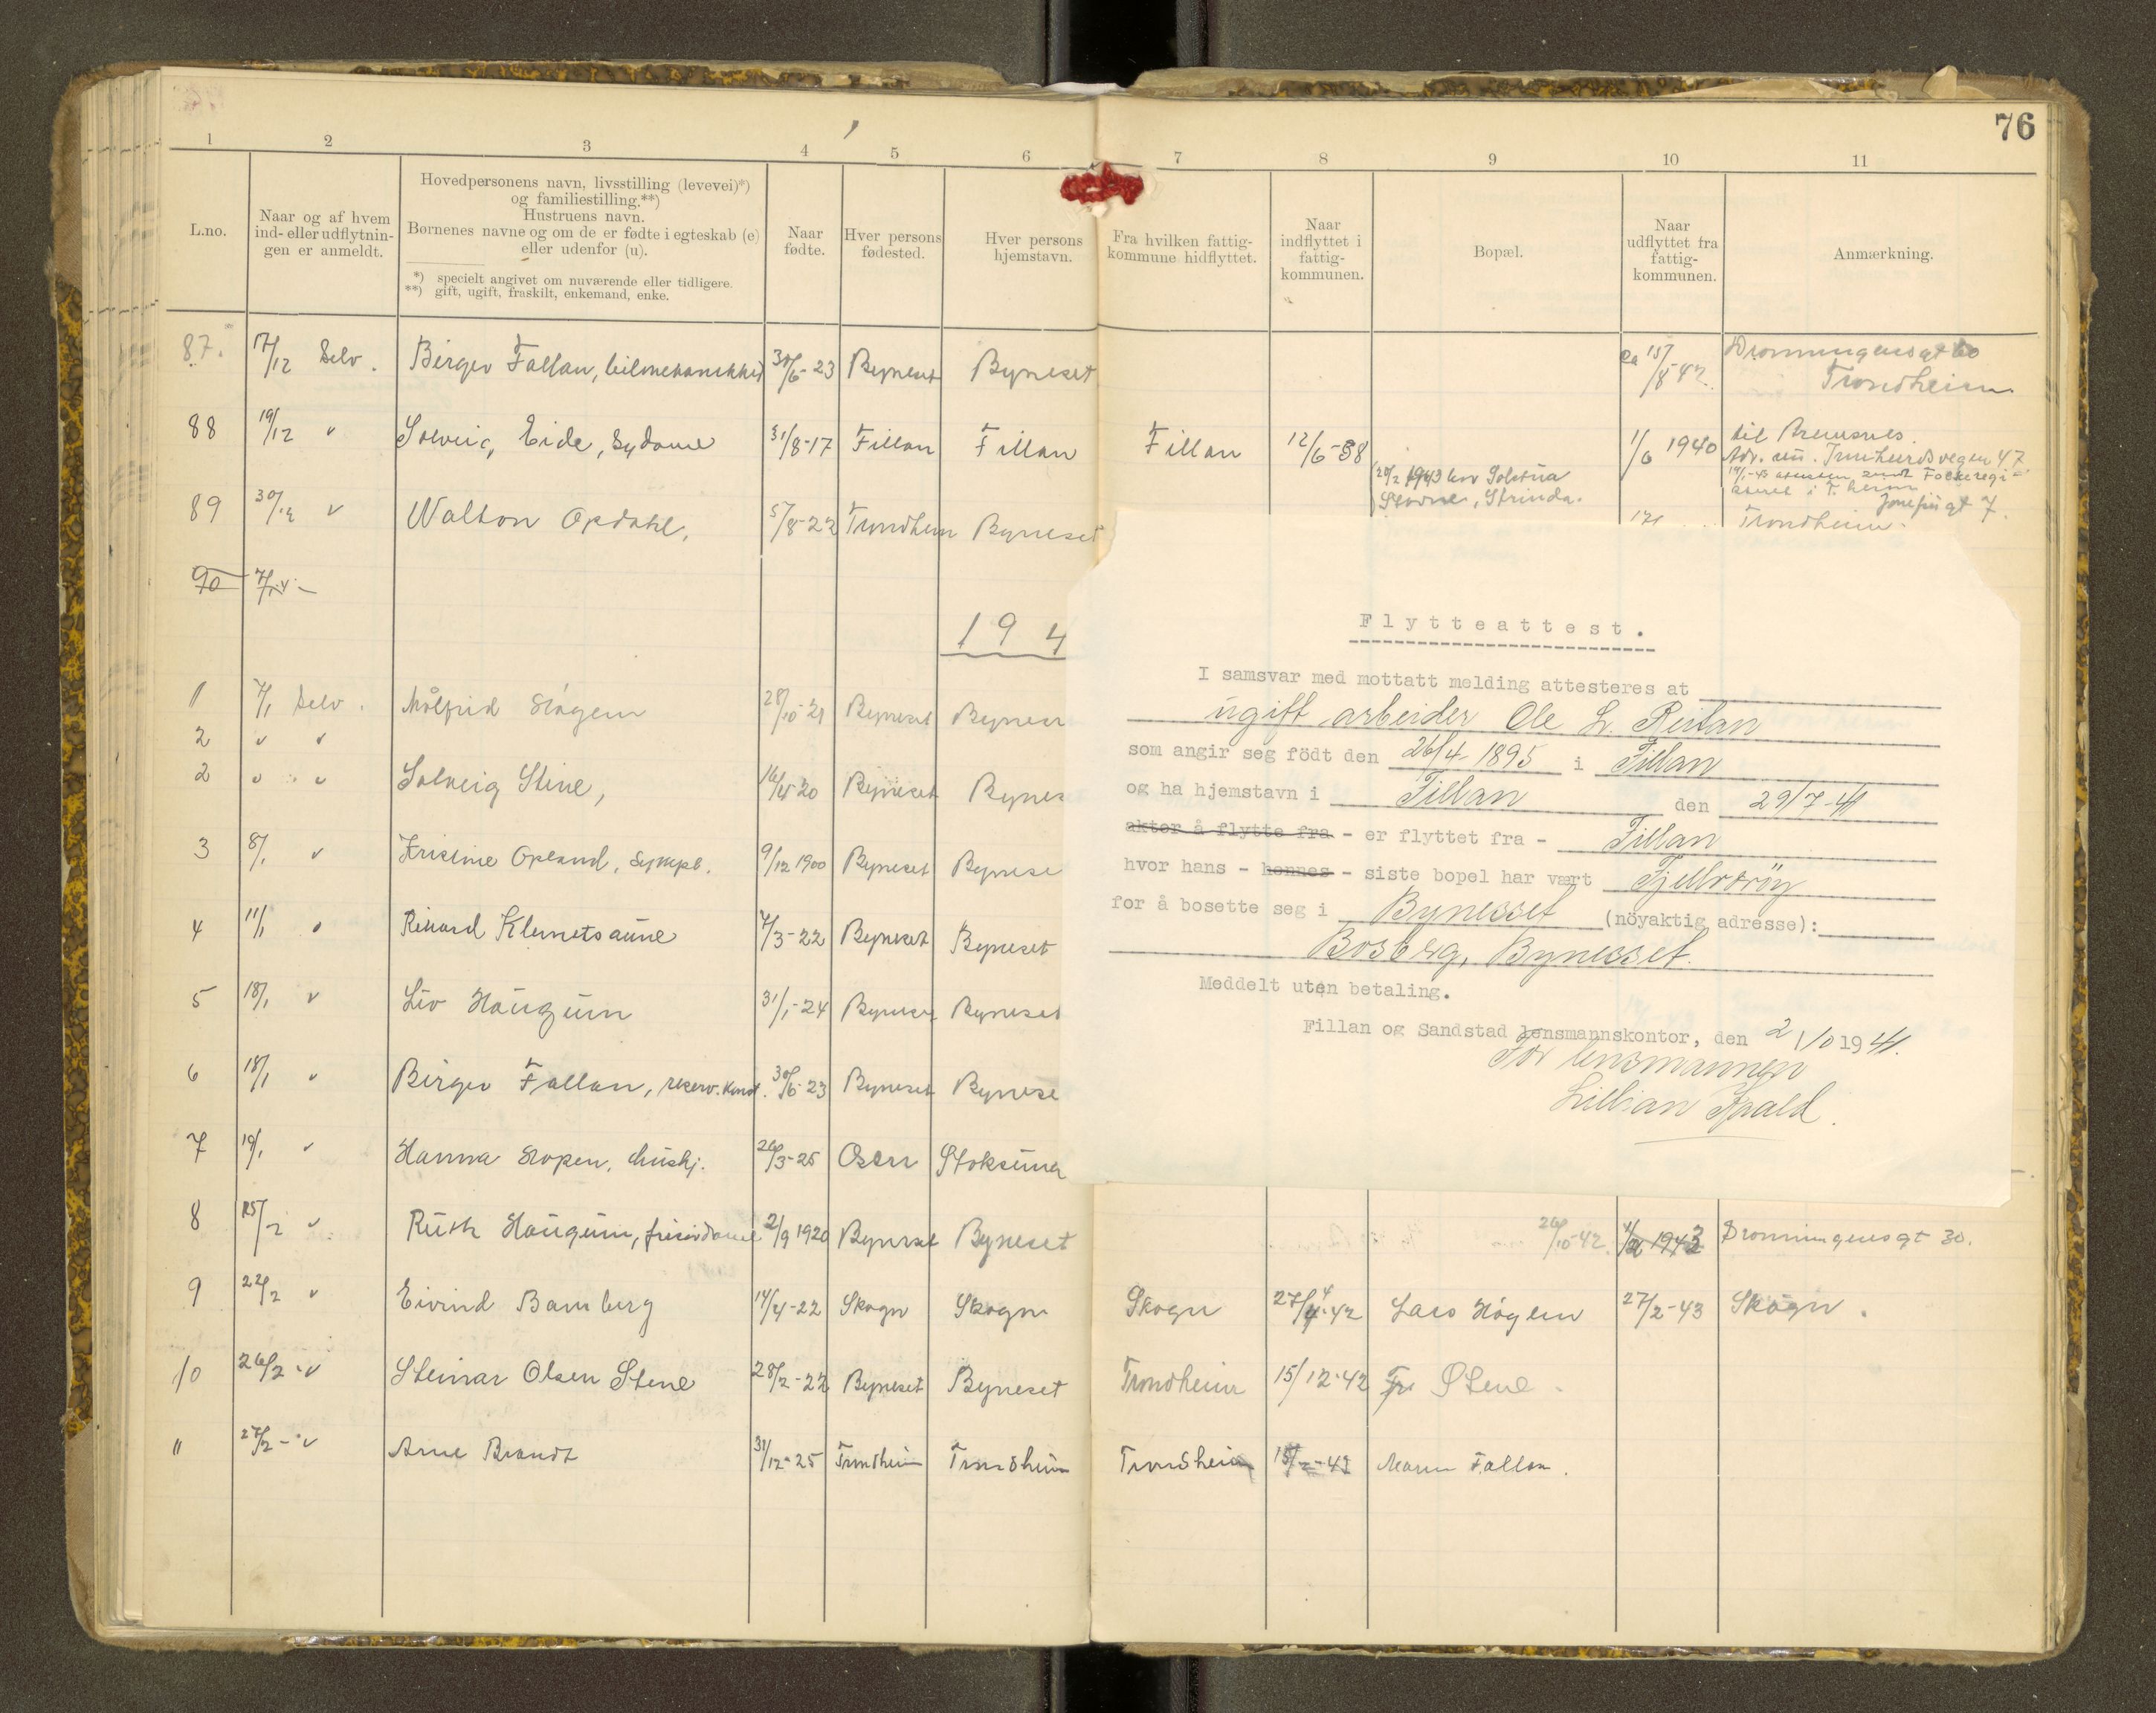 76
1 2 3 4 5 6 7 8 9 10 11
L.no.
Naar og af hvem
ind- eller udflytnin-
gen er anmeldt.
Hovedpersonens navn, livsstilling (levevei)*)
og familiestilling.**)
Hustruens navn.
Børnenes navne og om de er fødte i egteskab (e)
eller udenfor (u).
*) specielt angivet om nuværende eller tidligere.
**) gift, ugift, fraskilt, enkemand, enke.
Naar
fødte.
Hver persons
fødested.
Hver persons
hjemstavn.
Fra hvilken fattig-
kommune hidflyttet.
Naar
indflyttet i
fattig-
kommunen.
Bopæl.
Naar
udflyttet fra
fattig-
kommunen.
Anmærkning.
87. 17/12 Selv. Birger Fallan, bilmekanikker 30/6-23 Byneset Byneset ca 15/8-42 Dronningensgt 60
Trondheim
88 19/12 v Solveig Eide, Sydame 31/8-17 Fillan Fillan Fillan 12/6-38 1/6 1940 til
20/2 1943 hos
Stavne, Strinda.
89 30/12 v Walton Opdahl, 5/8-22 Trondheim Byneset Trondheim.
90 7/1-41 -
194
1 7/1 Selv. Målfrid Høgem 28/10-21 Byneset Bynes
2 v v
2 v v Solveig Stene, 16/4-20 Byneset Bynes
3 8/1 v Kristine Opland, 9/12 1900 Byneset Bynese
4 11/1 v Rikard Klemetsaune 7/3-22 Byneset Byneset
5 18/1 v Liv Haugum 31/1-24 Byneset Byneset
6 18/1 v Birger Fallan, reserv. 30/6-23 Byneset Bynese
7 19/1 v Hanna Hopen, hushj. 26/3-25 Osen Stoksund
8 25/2 v Ruth Haugum, frisørdame 2/9 1920 Byneset Byneset 26/10-42. 1943 Dronningensgt 30.
9 22/2 v Eivind Bamberg 14/4-22 Skogn Skogn Skogn 27/4-42 Lars Høgem 27/2-43 Skogn.
10 26/2 v Steinar Olsen Stene 28/2-22 Byneset Byneset Trondheim 15/12-42 Stene.
11 27/2 - v Arne Brandt 31/12-25 Trondheim Trondheim Trondheim 15/2-43 Maren Fallan.
Flytteattest.
I samsvar med mottatt melding attesteres at
ugift arbeider Ole L. Reitan
som angir seg födt den 26/4 1895 i Fillan
og ha hjemstavn i Fillan den 29/7-41
akter å flytte fra - er flyttet fra - Fillan
hvor hans - hennes - siste bopel har vært Fjellværöy
for å bosette seg i Bynesset (nöyaktig adresse):
Bosberg, Bynesset.
Meddelt uten betaling.
Fillan og Sandstad lensmannskontor, den 2/10 1941.
For lensmannen
Lillian